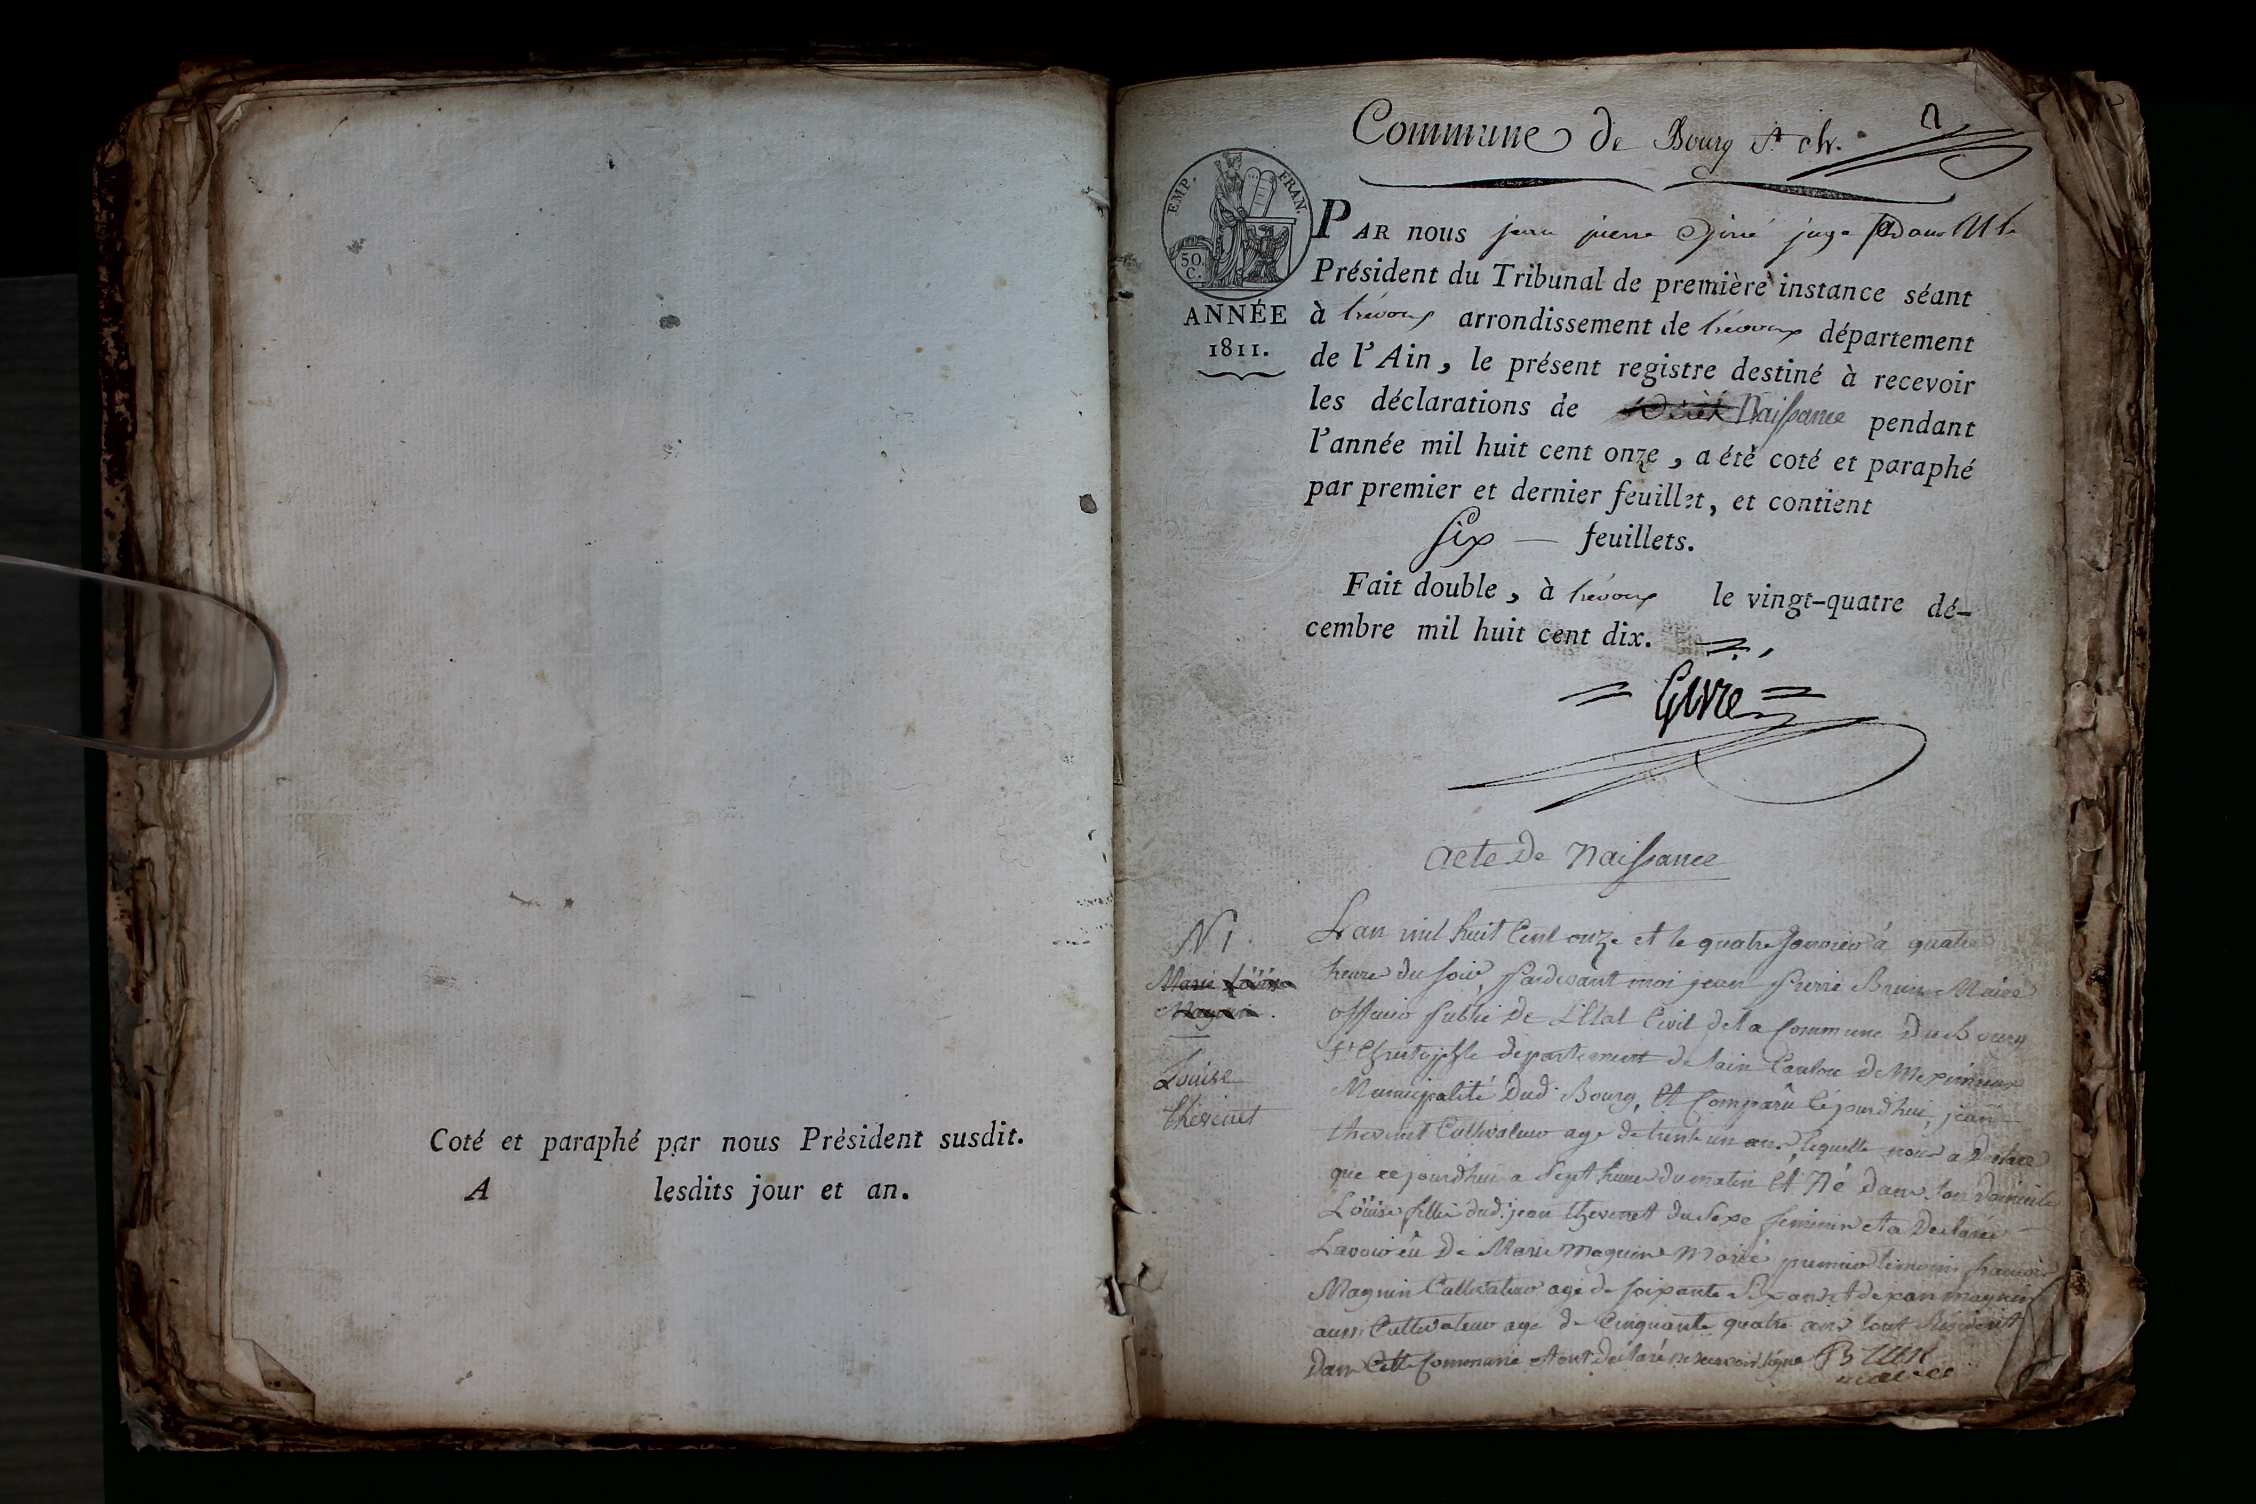 Coté et paraphé par nous Président susdit.
A lesdits jour et an.
Commune de Bourg St ch.
EMP. FRAN.
50 C.
ANNÉE
1811.
PAR nous jean pierre juge
Président du Tribunal de première instance séant
à trévoux arrondissement de trévoux département
de l'Ain, le présent registre destiné à recevoir
les déclarations de Naissance pendant
l'année mil huit cent onze, a été coté et paraphé
par premier et dernier feuillet, et contient
six — feuillets.
Fait double, à trévoux le vingt-quatre dé-
cembre mil huit cent dix.
Givre
Acte De Naissance
N 1
Marie Löuise
Magnin.
Löuise
thevenet
L'an mil huit Cent onze et le quatre Janvier à quatre
heure du soir, Pardevant moi jean Pierre Brun Maire
officier Public De L'Etat Civil de la Commune Du Bourg
St Christophle departement de lain Canton de Meximieux
Municipalité Dud. Bourg, Est Comparû Cejourdhui, jean
thevenet Cultivateur agé de trente un ans lequelle nous a Declaré
que cejourdhui a Sept heure du matin Et Né dans son domicile
Löuise fille dud. jean thevenet du Sexe feminin et a Declarée
Lavoir eü De Marie Magnin Marié premier temoin francois
Magnin Cultivateur agé de soixante Six ans et de jean magnin
aussi Cultivateur agé de Cinquante quatre ans tout Résident
Dans Cette Commune et ont declaré ne savoir signé Brun
maire